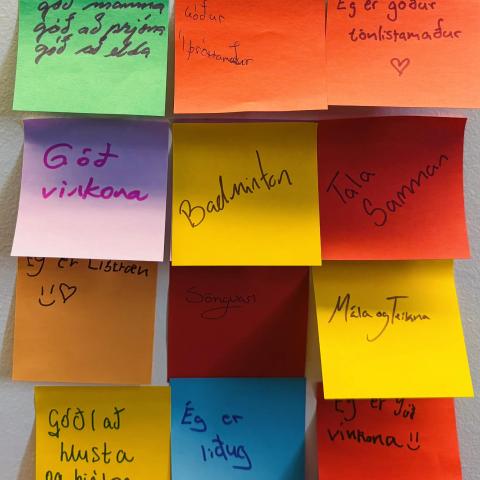 góð mamma
góð að prjóna
góð að elda
Góður
íþróttamaður
Ég er góður
tónlistamaður
Góð
vinkona
Badminton
Tala
Samman
Ég er Listræn
Söngvari
Mála og Teikna
Góð í að
hlusta
og hjálpa
Ég er
liðug
Ég er góð
vinkona